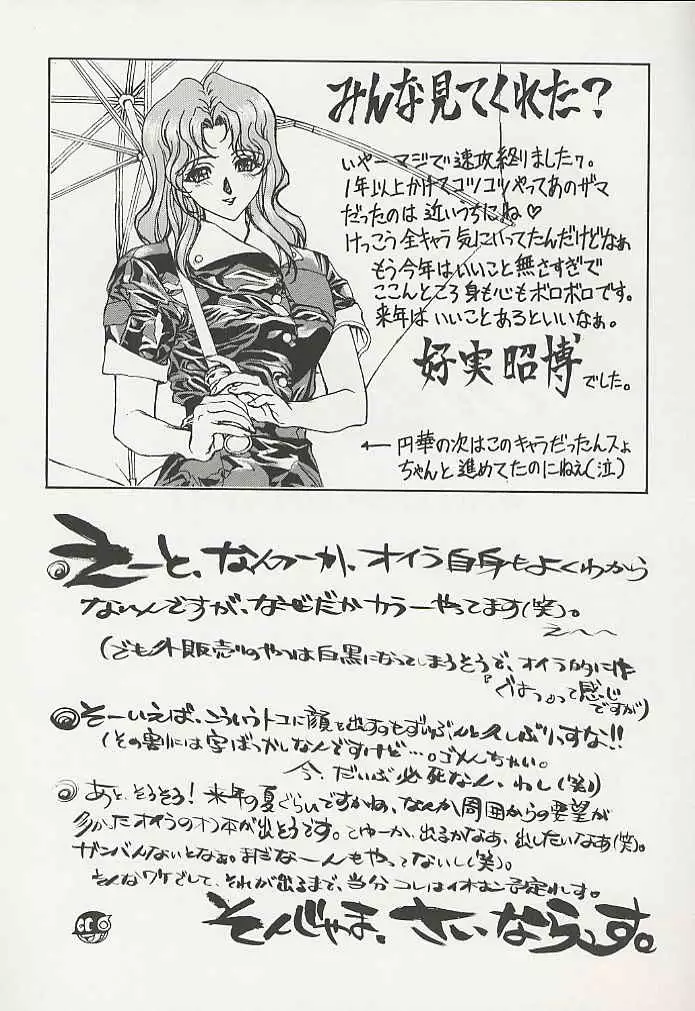 みんな見てくれた?
いやーマジで速攻終りましたァ。
1年以上かけてコツコツやってあのザマ
だったのは近いうちにね♡
けっこう全キャラ気にいってたんだけどなぁ
もう今年はいいこと無さすぎで
ここんところ身も心もボロボロです。
来年はいいことあるといいなぁ。
好実昭博でした。
← 円華の次はこのキャラだったんスよ
ちゃんと進めてたのにねぇ(泣)
えーと、なんつーか、オイラ自身もよくわから
ないんですが、なぜだかカラーやってます(笑)。
え〜〜
(でも外販売りのやつは白黒になってしまうそうで、オイラ的に
『ぐはっ』って感じ
ですが)
そーいえば、こういうトコに顔を出すのもずいぶんと久しぶりっすな!!
(その割には字ばっかしなんですけど…。ゴメんちゃい。
今、だいぶ必死なん、わし(笑))
あと、そうそう!来年の夏ぐらいですかね、なんか周囲からの要望が
多かったオイラのオフ本が出そうです。てゆーか、出るかなあ、出したいなあ(笑)。
ガンバんないとなぁ。まだなーんもやってないし(笑)。
そんなワケでして、それが出るまで、当分コレはイオホン予定れす。
そんじゃま、さいならっす。